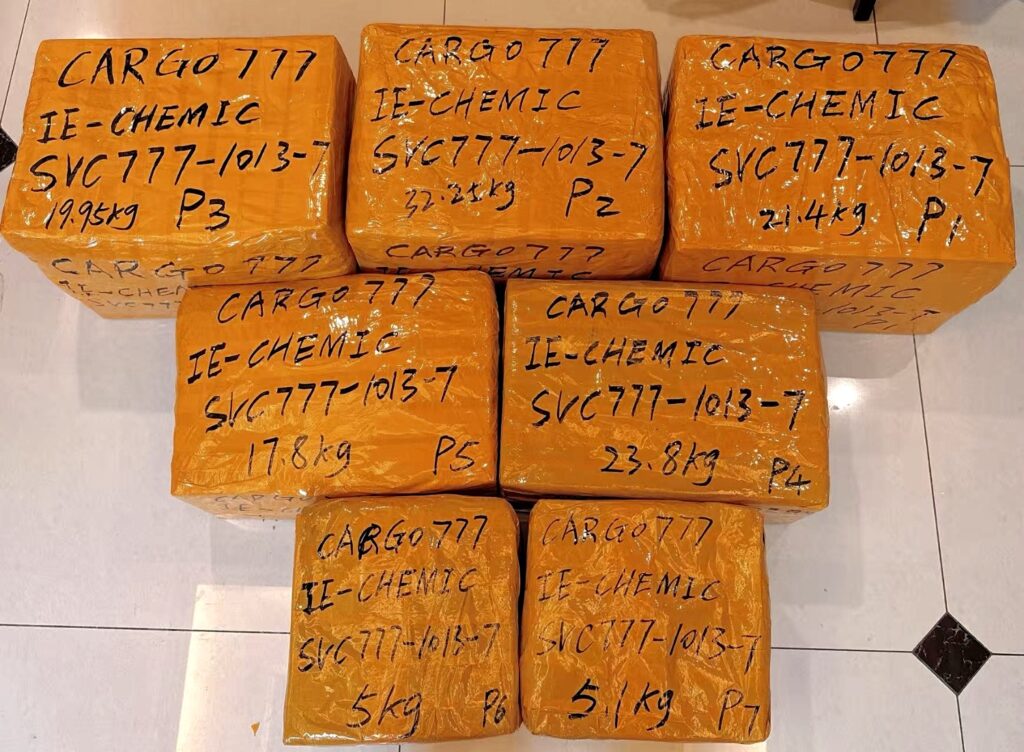 CARGO 777
IE-CHEMIC
SVC777-1013-7
19.95kg P3
CARGO 777
IE-CHEM
SVC77
CARGO 777
IE-CHEMIC
SVC777-1013-7
32.25kg P2
CARGO 777
IE-CHEMIC
CARGO 777
IE-CHEMIC
SVC777-1013-7
21.4kg P1
CARGO 777
IE-CHEMIC
1013-7
P1
CARGO 777
IE-CHEMIC
SVC777-1013-7
17.8kg P5
CARGO
CARGO 777
IE-CHEMIC
SVC777-1013-7
23.8kg P4
CARGO 777
IE-CHEMIC
SVC777-1013-7
5kg P6
CARGO 777
IE-CHEMIC
SVC777-1013-7
5.1kg P7